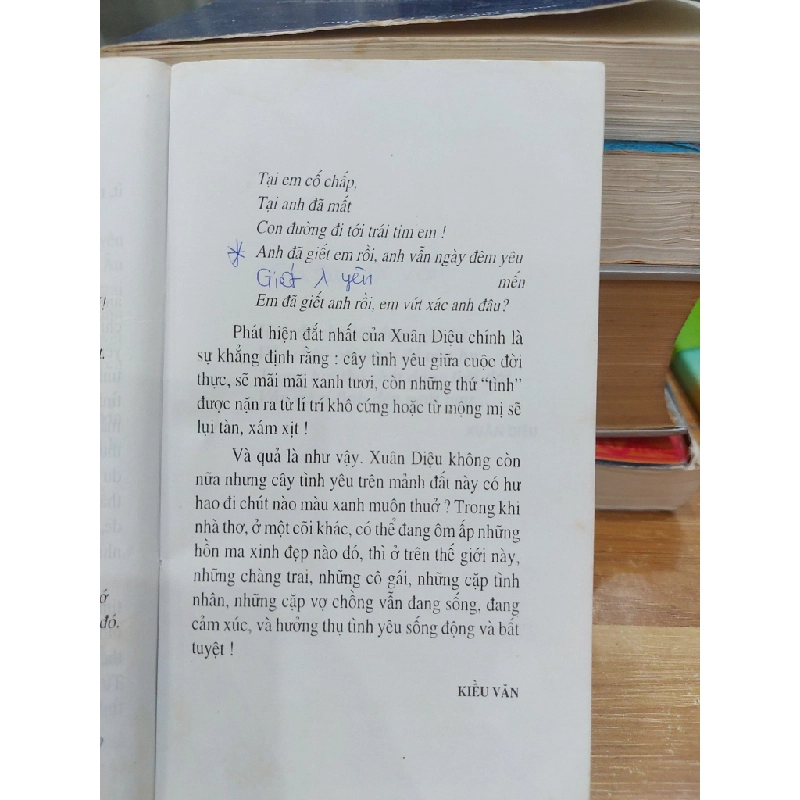 Tại em cố chấp,
Tại anh đã mất
Con đường đi tới trái tim em !
* Anh đã giết em rồi, anh vẫn ngày đêm yêu
Giết λ yên mến
Em đã giết anh rồi, em vứt xác anh đâu?
Phát hiện đắt nhất của Xuân Diệu chính là
sự khẳng định rằng : cây tình yêu giữa cuộc đời
thực, sẽ mãi mãi xanh tươi, còn những thứ “tình”
được nặn ra từ lí trí khô cứng hoặc từ mộng mị sẽ
lụi tàn, xám xịt !
Và quả là như vậy. Xuân Diệu không còn
nữa nhưng cây tình yêu trên mảnh đất này có hư
hao đi chút nào màu xanh muôn thuở ? Trong khi
nhà thơ, ở một cõi khác, có thể đang ôm ấp những
hồn ma xinh đẹp nào đó, thì ở trên thế giới này,
những chàng trai, những cô gái, những cặp tình
nhân, những cặp vợ chồng vẫn đang sống, đang
cảm xúc, và hưởng thụ tình yêu sống động và bất
tuyệt !
KIỀU VĂN